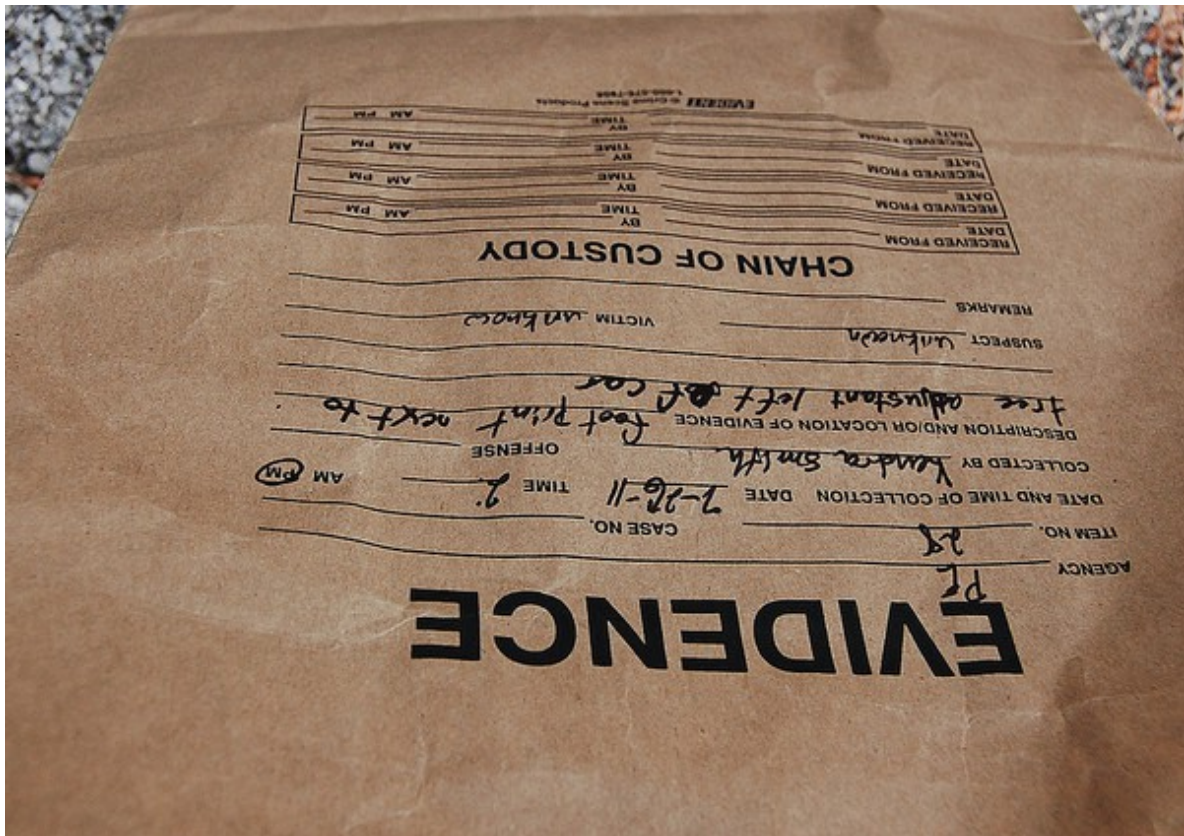 EVIDENCE
AGENCY PL
ITEM NO. 28 CASE NO.
DATE AND TIME OF COLLECTION DATE 7-26-11 TIME 2 AM PM
COLLECTED BY Kendra Smith OFFENSE
DESCRIPTION AND/OR LOCATION OF EVIDENCE foot print next to
tree adjustant left of car
SUSPECT unknown VICTIM unknow
REMARKS
CHAIN OF CUSTODY
RECEIVED FROM BY
DATE TIME AM PM
RECEIVED FROM BY
DATE TIME AM PM
RECEIVED FROM BY
DATE TIME AM PM
RECEIVED FROM BY
DATE TIME AM PM
EVIDENT Crime Scene Products